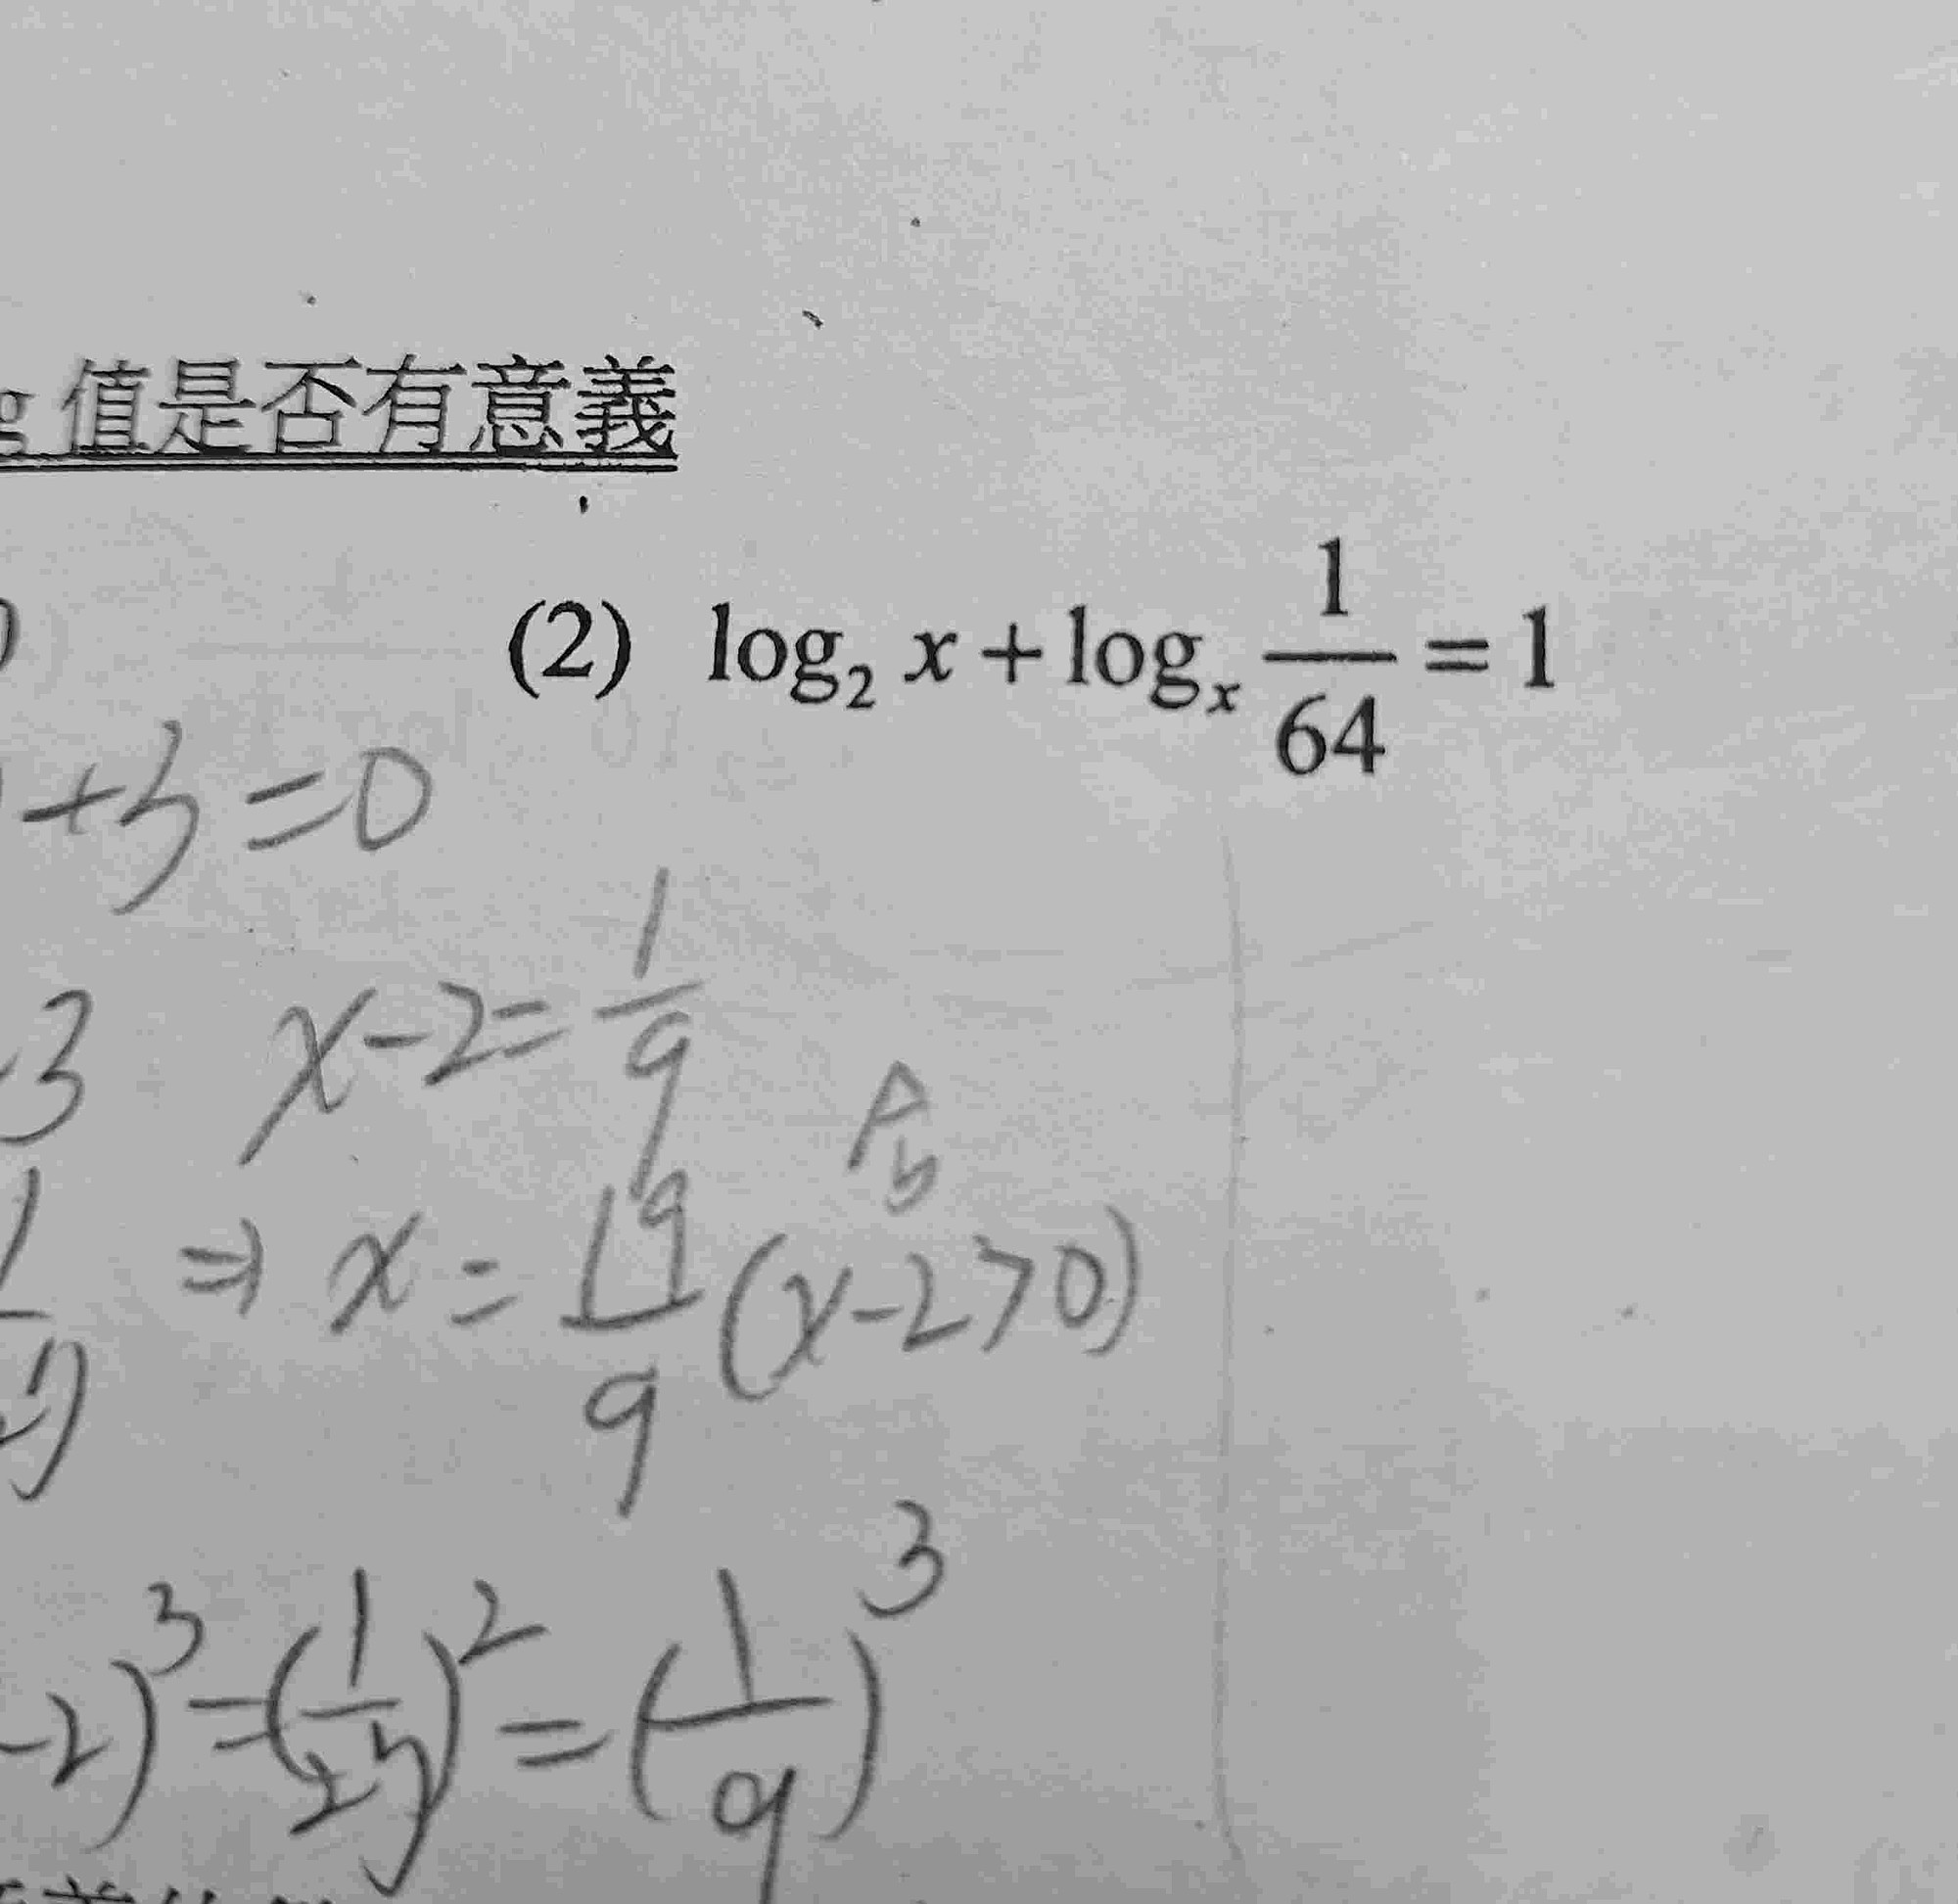 g 值是否有意義
(2) log₂ x + logₓ 1/64 = 1
+3=0
3 x-2=1/9
A
b
⇒ x = 19/9 (x-2>0)
-2)³=(1/27)²=(1/9)³